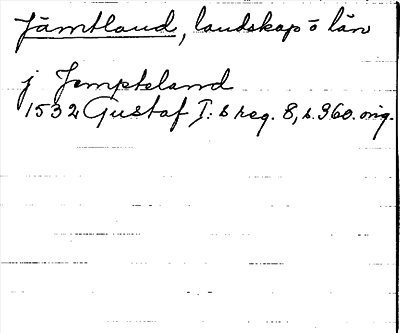 Jämtland, landskap o län
j Jempteland
1532 Gustaf I:s reg. 8, s. 360. orig.